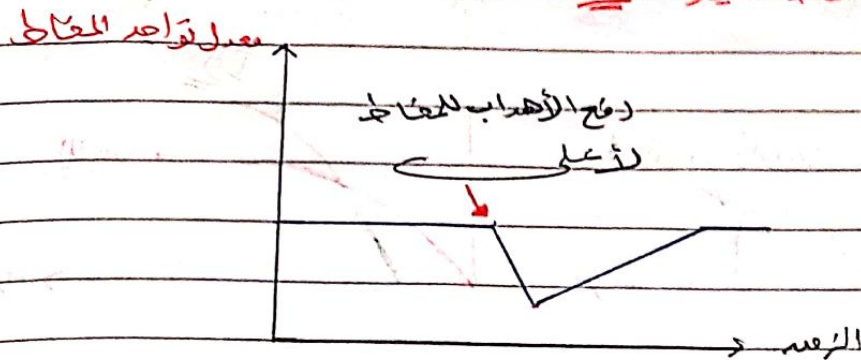 معدل تواجد المخاط
دفع الأهداب للمخاط
لأعلى
الزمن